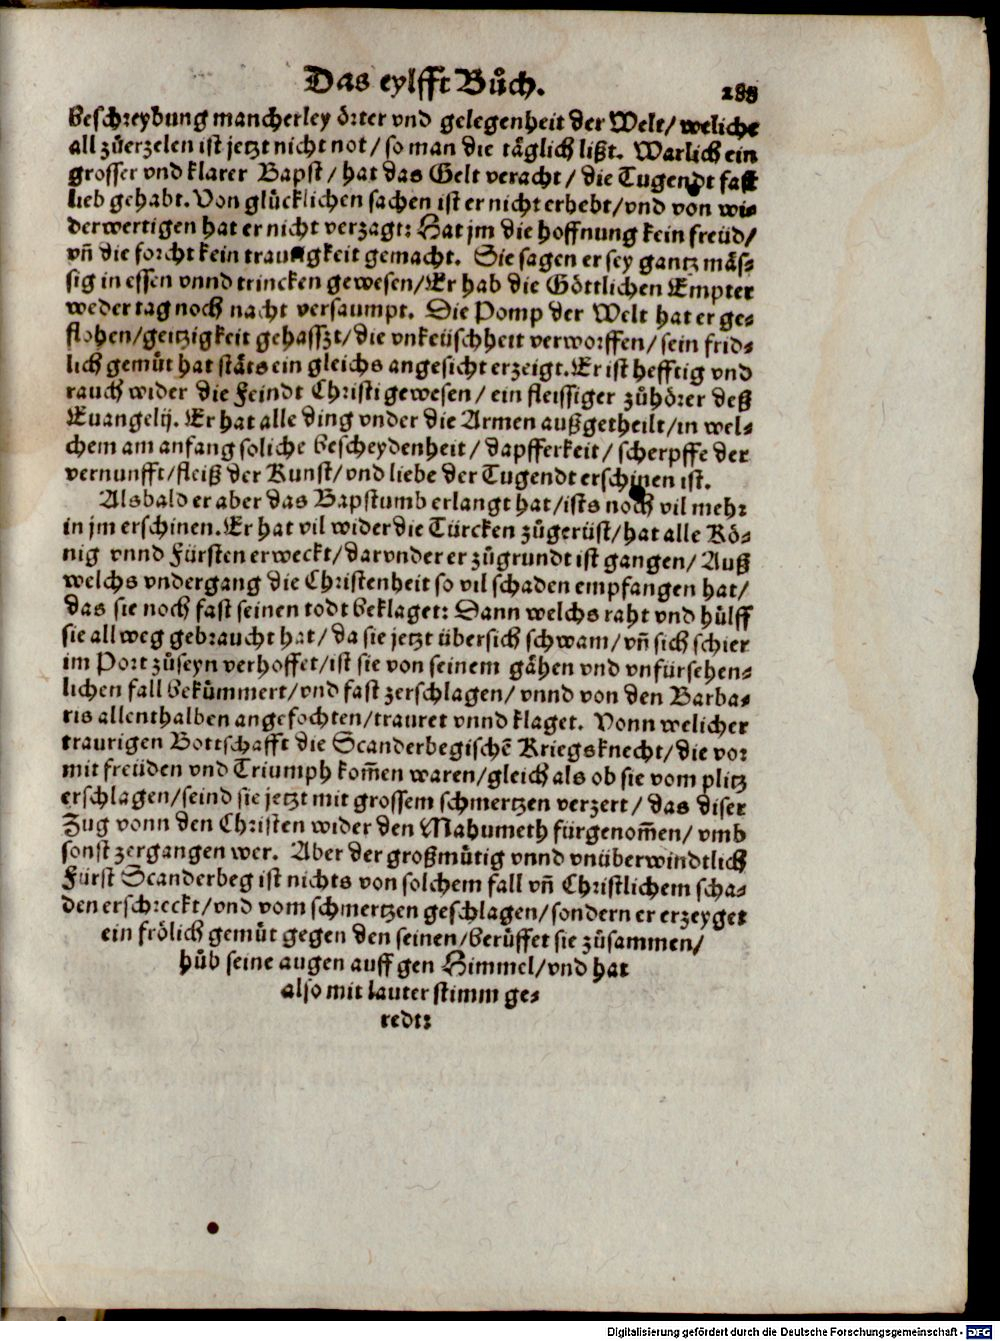 Das eylfft Bůch. 188
beschreybung mancherley örter vnd gelegenheit der Welt/ weliche
all zůerzelen ist jetzt nicht not/ so man die täglich lißt. Warlich ein
grosser vnd klarer Bapst/ hat das Gelt veracht/ die Tugendt fast
lieb gehabt. Von glücklichen sachen ist er nicht erhebt/ vnd von wi-
derwertigen hat er nicht verzagt: Hat jm die hoffnung kein freüd/
vñ die forcht kein traurigkeit gemacht. Sie sagen er sey gantz mäs-
sig in essen vnnd trincken gewesen/ Er hab die Göttlichen Empter
weder tag noch nacht versaumpt. Die Pomp der Welt hat er ge-
flohen/ geitzigkeit gehasszt/ die vnkeüschheit verworffen/ sein frid-
lich gemůt hat stäts ein gleichs angesicht erzeigt. Er ist hefftig vnd
rauch wider die Feindt Christi gewesen/ ein fleissiger zůhörer deß
Euangelij. Er hat alle ding vnder die Armen außgetheilt/ in wel-
chem am anfang soliche bescheydenheit/ dapfferkeit/ scherpffe der
vernunfft/ fleiß der Kunst/ vnd liebe der Tugendt erschinen ist.
Alsbald er aber das Bapstumb erlangt hat/ ists noch vil mehr
in jm erschinen. Er hat vil wider die Türcken zůgerüst/ hat alle Kö-
nig vnnd Fürsten erweckt/ darunder er zůgrundt ist gangen/ Auß
welchs vndergang die Christenheit so vil schaden empfangen hat/
das sie noch fast seinen todt beklaget: Dann welchs raht vnd hülff
sie all weg gebraucht hat/ da sie jetzt übersich schwam/ vñ sich schier
im Port zůseyn verhoffet/ ist sie von seinem gähen vnd vnfürsehen-
lichen fall bekümmert/ vnd fast zerschlagen/ vnnd von den Barba-
ris allenthalben angefochten/ trauret vnnd klaget. Vonn welicher
traurigen Bottschafft die Scanderbegischē Kriegsknecht/ die vor
mit freüden vnd Triumph kom̃en waren/ gleich als ob sie vom plitz
erschlagen/ seind sie jetzt mit grossem schmertzen verzert/ das diser
Zug vonn den Christen wider den Mahumeth fürgenom̃en/ vmb
sonst zergangen wer. Aber der großmütig vnnd vnüberwindtlich
Fürst Scanderbeg ist nichts von solchem fall vñ Christlichem scha-
den erschreckt/ vnd vom schmertzen geschlagen/ sondern er erzeyget
ein frölich gemůt gegen den seinen/ berüffet sie zůsammen/
hůb seine augen auff gen Himmel/ vnd hat
also mit lauter stimm ge-
redt:
Digitalisierung gefördert durch die Deutsche Forschungsgemeinschaft - DFG